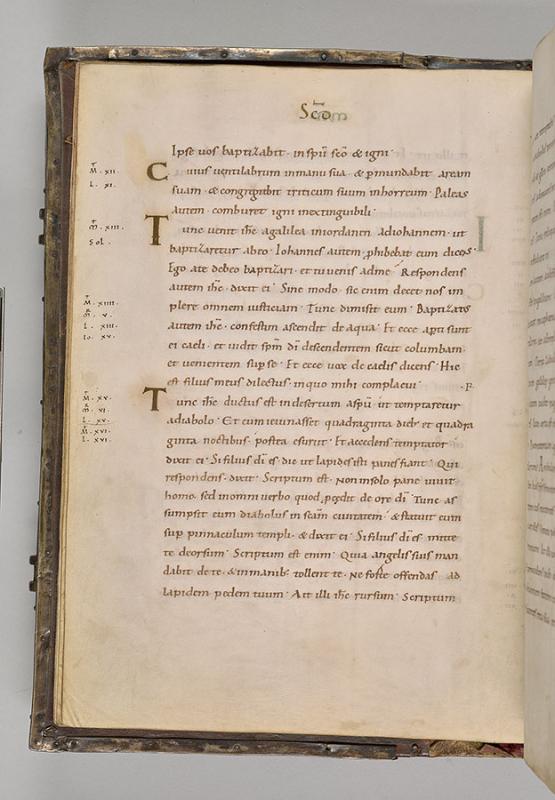 Scdm
Ipse uos baptizabit · in spū sc̄o & igni ·
M̄ · XII ·
L · XI ·
Cuius uentilabrum in manu sua · & p̄mundabit aream
suam · & congregabit triticum suum in horreum · Paleas
autem comburet igni inextinguibili ·
M̄ · XIII ·
Sol ·
Tunc uenit ih̄c a galilea in iordanen ad iohannem · ut
baptizaretur ab eo · Iohannes autem ꝓhibebat eum dicens ·
Ego a te debeo baptizari · et tu uenis ad me · Respondens
autem ih̄c · dixit ei · Sine modo · sic enim decet nos im
plere omnem iusticiam · Tunc dimisit eum · Baptizatus
M̄ · XIIII ·
M̄ · V ·
L · XIII ·
Io · XV ·
autem ih̄c · confestim ascendit de aqua · Et ecce aperti sunt
ei caeli · et uidit spm̄ dī descendentem sicut columbam
et uenientem sup se · Et ecce uox de caelis dicens · Hic
est filius meus dilectus · in quo mihi complacui · F ·
M̄ · XV ·
M̄ · VI ·
L · XV ·
M̄ · XVI ·
L · XVI ·
Tunc ih̄c ductus est in desertum a spū · ut temptaretur
a diabolo · Et cum ieiunasset quadraginta dieb; et quadra
ginta noctibus · postea esuriit · Et accedens temptator
dixit ei · Si filius dī es · dic ut lapides isti panes fiant · Qui
respondens · dixit · Scriptum est · Non in solo pane uiuit
homo · sed in omni uerbo quod ꝓcedit de ore dī · Tunc as
sumpsit eum diabolus in sc̄am ciuitatem · & statuit eum
sup pinnaculum templi · & dixit ei · Si filius dī es · mitte
te deorsum · Scriptum est enim · Quia angelis suis man
dabit de te · & in manib; tollent te · Ne forte offendas ad
lapidem pedem tuum · Ait illi ih̄c rursum · Scriptum